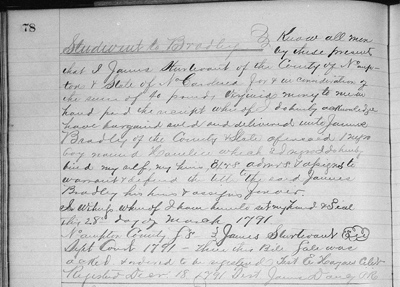 78
Studivant to Bradley } Know all men
by these present
that I James Sturtevant of the County of Namp-
ton & State of No Carolina for & in consideration of
the sum of 60 pounds Virginia money to me in
hand paid the receipt whereof I do hereby acknowledge
have bargained sold and delivered unto James
Bradley of the County & State aforesaid
boy named which I do hereby
bind my self, my heirs, Extrs admrs & assigns to
warrant & defend it till the said James
Bradley his heirs & assigns forever
In Witness whereof I have hereto set my hand & Seal
this 28th day of March 1791
Nampton County SS } James Sturtevant
Sept Court 1791 - Then this Bill Sale was
acked & ordered to be registered Test
Registered Decr 18 1791 Test James